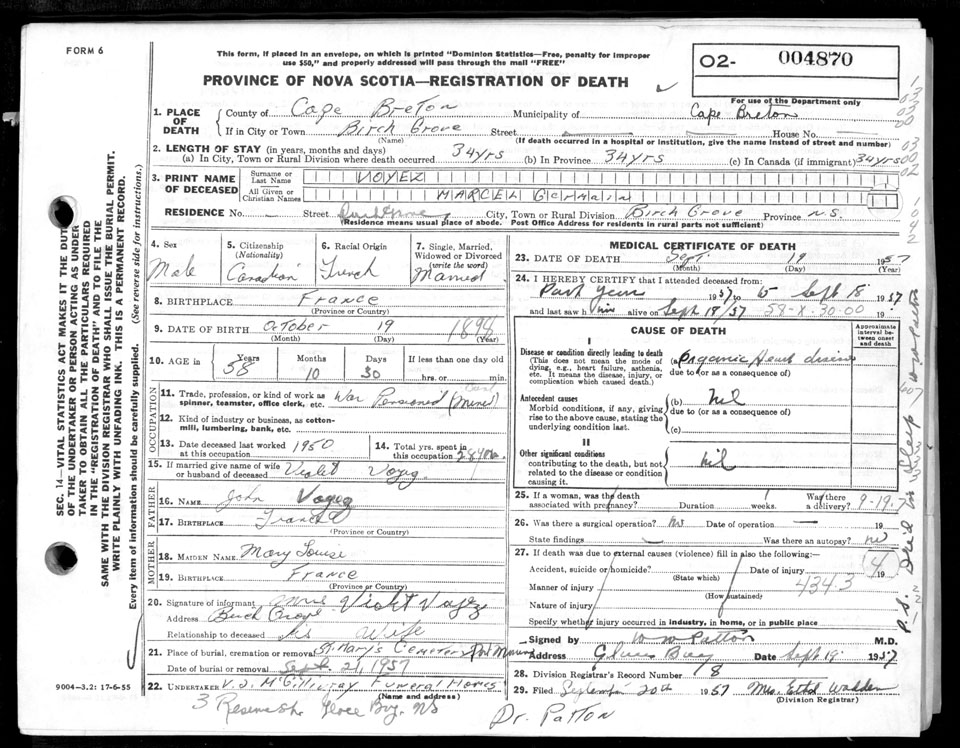 FORM 6
This form, if placed in an envelope, on which is printed "Dominion Statistics—Free, penalty for improper
use $50," and properly addressed will pass through the mail "FREE"
PROVINCE OF NOVA SCOTIA—REGISTRATION OF DEATH
O2- 004870
For use of the Department only
1. PLACE OF DEATH
County of Cape Breton Municipality of Cape Breton
If in City or Town Birch Grove Street House No.
(Name) (If death occurred in a hospital or institution, give the name instead of street and number)
2. LENGTH OF STAY (in years, months and days)
(a) In City, Town or Rural Division where death occurred 34 yrs (b) In Province 34 yrs (c) In Canada (if immigrant) 34 yrs
3. PRINT NAME OF DECEASED
Surname or Last Name VOYEZ
All Given or Christian Names MARCEL Germain
RESIDENCE No. Street City, Town or Rural Division Birch Grove Province N.S.
(Residence means usual place of abode. Post Office Address for residents in rural parts not sufficient)
4. Sex
Male
5. Citizenship (Nationality)
Canadian
6. Racial Origin
French
7. Single, Married, Widowed or Divorced (write the word)
Married
8. BIRTHPLACE France
(Province or Country)
9. DATE OF BIRTH October 19 1898
(Month) (Day) (Year)
10. AGE in Years Months Days If less than one day old
58 10 30 hrs. or min.
OCCUPATION
11. Trade, profession, or kind of work as spinner, teamster, office clerk, etc. War Pensioned (Miner)
12. Kind of industry or business, as cotton-mill, lumbering, bank, etc.
13. Date deceased last worked at this occupation 1950
14. Total yrs. spent in this occupation 28 yrs.
15. If married give name of wife or husband of deceased Violet Voyez
FATHER
16. NAME John Voyez
17. BIRTHPLACE France
(Province or Country)
MOTHER
18. MAIDEN NAME Mary Louise
19. BIRTHPLACE France
(Province or Country)
20. Signature of informant Mrs Violet Voyez
Address Birch Grove
Relationship to deceased His Wife
21. Place of burial, cremation or removal St. Mary's Cemetery Port Morien
Date of burial or removal Sept. 21, 1957
22. UNDERTAKER V.J. McGillivray Funeral Homes
(Name and address)
3 Reserve St. Glace Bay, NS
9004—3.2: 17-6-55
MEDICAL CERTIFICATE OF DEATH
23. DATE OF DEATH Sept. 19 1957
(Month) (Day) (Year)
24. I HEREBY CERTIFY that I attended deceased from:
Past Year 1957 to Sept 18 1957
and last saw him alive on Sept 18/57 19
58-X-30-00
CAUSE OF DEATH
Approximate interval between onset and death
I
Disease or condition directly leading to death
(This does not mean the mode of dying, e.g., heart failure, asthenia, etc. It means the disease, injury, or complication which caused death.)
(a) Organic Heart disease
due to (or as a consequence of)
Antecedent causes
Morbid conditions, if any, giving rise to the above cause, stating the underlying condition last.
(b) Nil
due to (or as a consequence of)
(c)
II
Other significant conditions
contributing to the death, but not related to the disease or condition causing it.
Nil
25. If a woman, was the death associated with pregnancy? Duration weeks. Was there a delivery?
9-19-7
26. Was there a surgical operation? No Date of operation 19
State findings Was there an autopsy? no
27. If death was due to external causes (violence) fill in also the following:—
Accident, suicide or homicide? Date of injury 19
(State which)
(4)
Manner of injury 434.3
(How sustained)
Nature of injury
Specify whether injury occurred in industry, in home, or in public place
Signed by W W Patton M.D.
Address Glace Bay Date Sept 19 1957
28. Division Registrar's Record Number 18
29. Filed September 20th 1957 Mrs. Ethel Wadden
(Division Registrar)
Dr. Patton
SEC. 14—VITAL STATISTICS ACT MAKES IT THE DUTY
OF THE UNDERTAKER OR PERSON ACTING AS UNDER-
TAKER TO OBTAIN ALL THE PARTICULARS REQUIRED
IN THE "REGISTRATION OF DEATH" AND TO FILE THE
SAME WITH THE DIVISION REGISTRAR WHO SHALL ISSUE THE BURIAL PERMIT.
WRITE PLAINLY WITH UNFADING INK. THIS IS A PERMANENT RECORD.
Every item of information should be carefully supplied. (See reverse side for instructions.)
P.S. Died in Sleep W W Patton